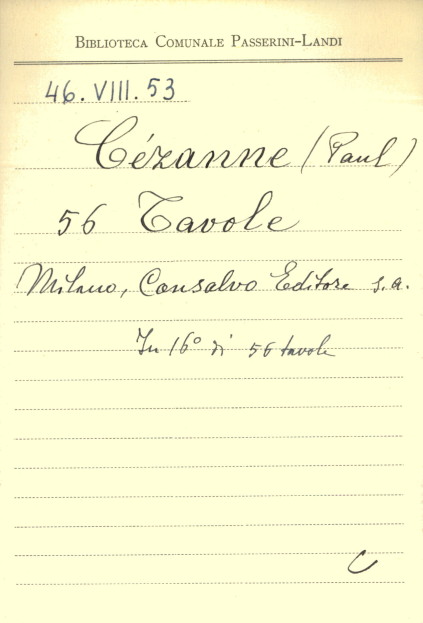 BIBLIOTECA COMUNALE PASSERINI-LANDI
46. VIII. 53
Cézanne (Paul)
56 Tavole
Milano, Consalvo Editore s.a.
In 16° di 56 tavole
C